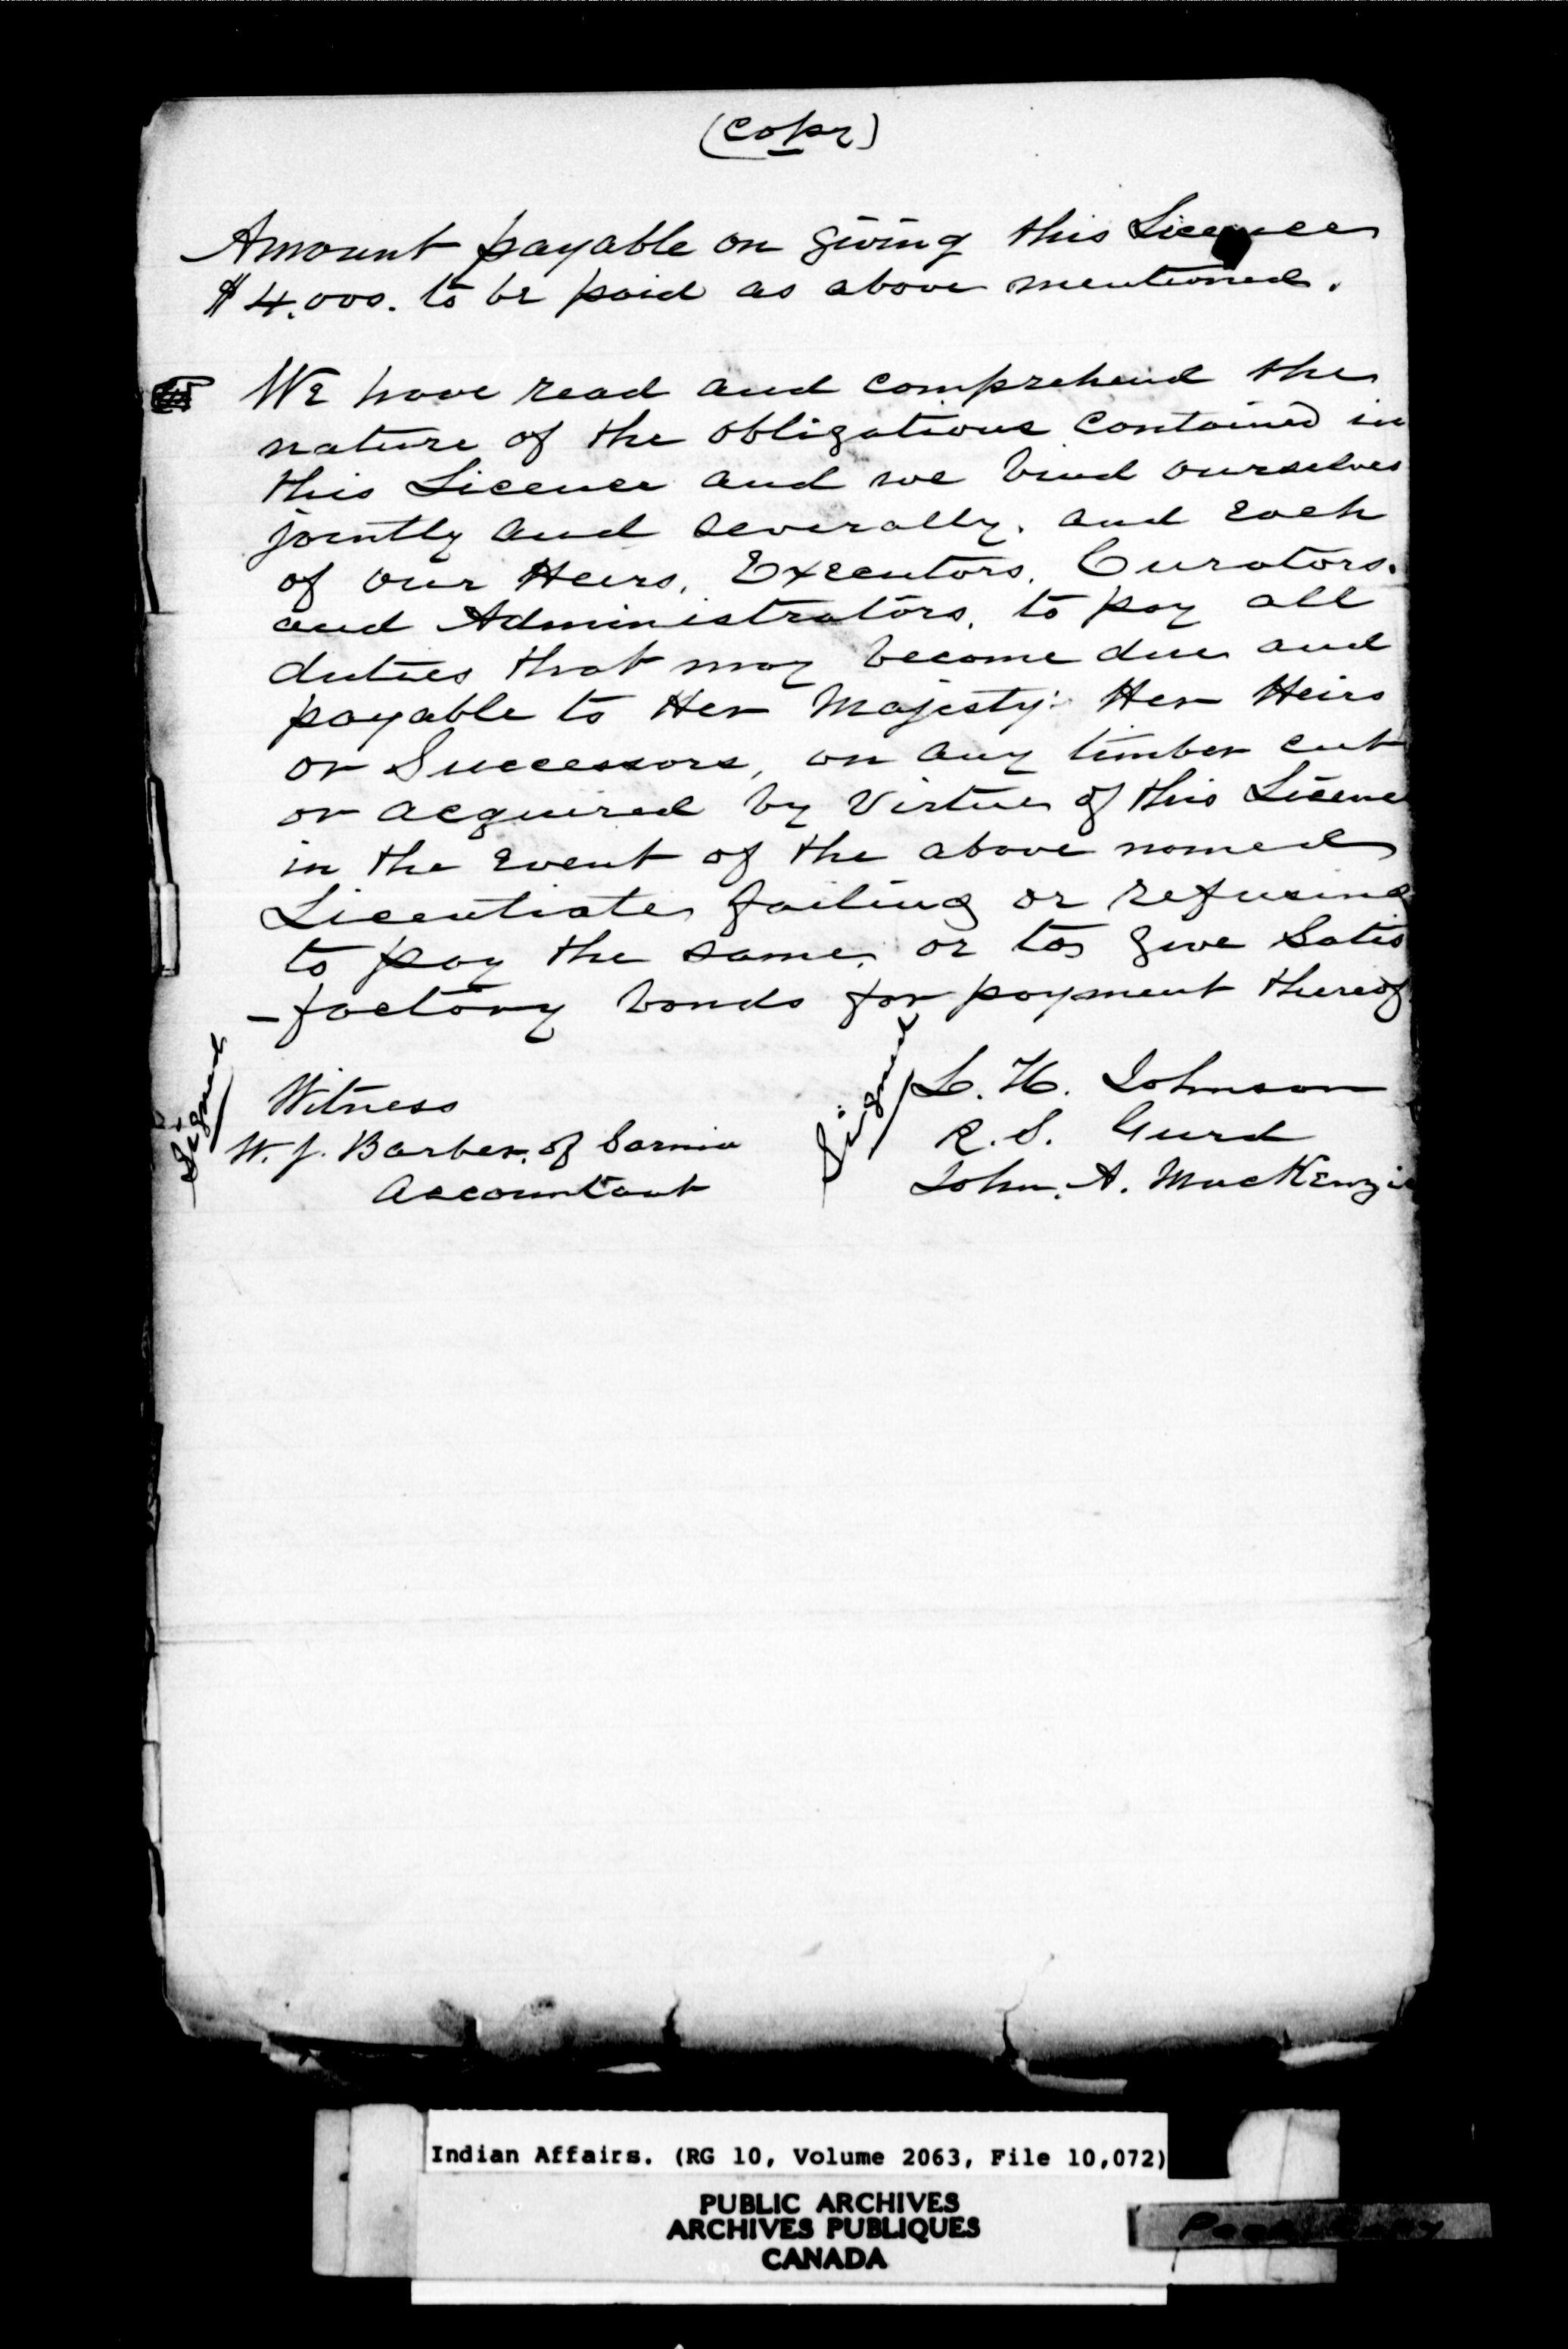 (Copy)
Amount payable on giving this Licence
$4.000. to be paid as above mentioned.
We have read and comprehend the
nature of the obligations contained in
this Licence and we bind ourselves
jointly and severally. and each
of our Heirs, Executors, Curators.
and Administrators, to pay all
duties that may become due and
payable to Her Majesty. Her Heirs
or Successors, on any timber cut
or acquired by Virtue of this Licence
in the event of the above named
Licentiate failing or refusing
to pay the same or to give Satis
-factory bonds for payment thereof
Signed
Witness
W. J. Barber. of Sarnia
Accountant
Signed
L. H. Johnson
R. S. Gurd
John. A. MacKenzie
Indian Affairs. (RG 10, Volume 2063, File 10,072)
PUBLIC ARCHIVES
ARCHIVES PUBLIQUES
CANADA